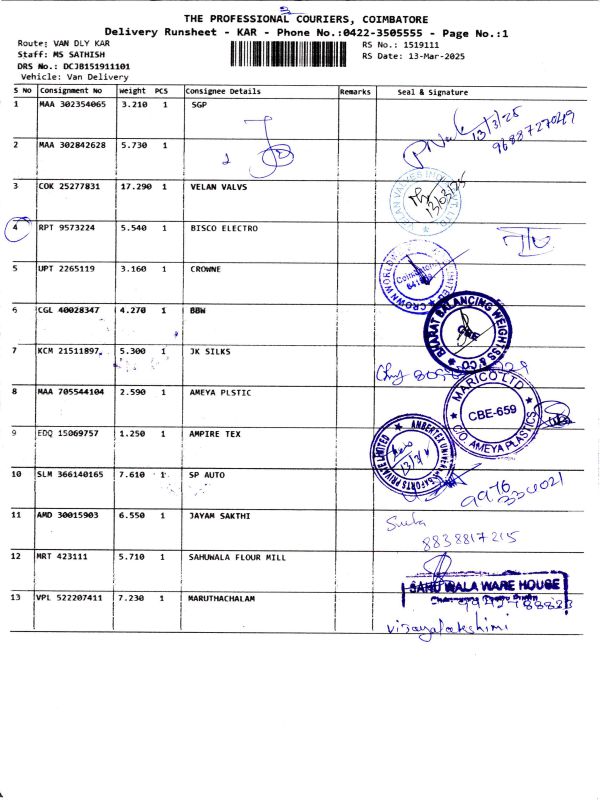 THE PROFESSIONAL COURIERS, COIMBATORE
Delivery Runsheet - KAR - Phone No.:0422-3505555 - Page No.:1
Route: VAN DLY KAR
RS No.: 1519111
Staff: MS SATHISH
RS Date: 13-Mar-2025
DRS No.: DCJ8151911101
Vehicle: Van Delivery
S No Consignment No Weight PCS Consignee Details Remarks Seal & Signature
1 MAA 302354065 3.210 1 SGP
13/3/25
9688727049
2 MAA 302842628 5.730 1
3 COK 25277831 17.290 1 VELAN VALVS
13/03/25
4 RPT 9573224 5.540 1 BISCO ELECTRO
5 UPT 2265119 3.160 1 CROWNE
6 CGL 40028347 4.270 1 BBW
BHARAT BALANCING WEIGHTSS & CO.
CBE
7 KCM 21511897 5.300 1 JK SILKS
8 MAA 705544104 2.590 1 AMEYA PLSTIC
MARICO LTD
CBE-659
C/O. AMEYA PLASTICS
9 EDQ 15069757 1.250 1 AMPIRE TEX
PRIVATE LIMITED
10 SLM 366140165 7.610 1 SP AUTO
11 AMD 30015903 6.550 1 JAYAM SAKTHI
8838817215
12 MRT 423111 5.710 1 SAHUWALA FLOUR MILL
SAHU WALA WARE HOUSE
13 VPL 522207411 7.230 1 MARUTHACHALAM